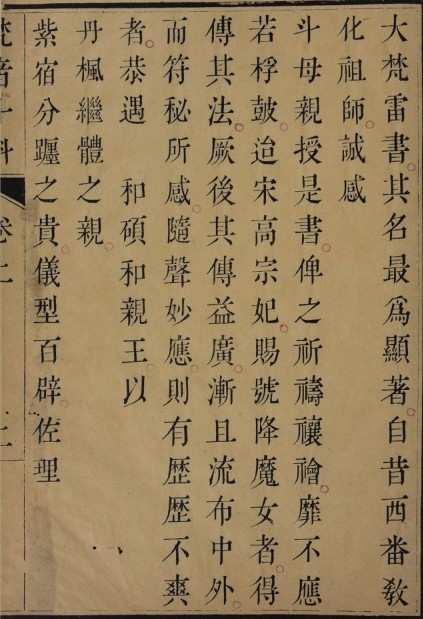 大梵雷書其名最爲顯著自昔西番教
化祖師誠感
斗母親授是書俾之祈禱禳禬靡不應
若桴鼓迨宋高宗妃賜號降魔女者得
傳其法厥後其傳益廣漸且流布中外
而符秘所感隨聲妙應則有歷歷不爽
者恭遇　和碩和親王以
丹楓繼體之親
紫宿分躔之貴儀型百辟佐理
梵音斗科　卷上　上